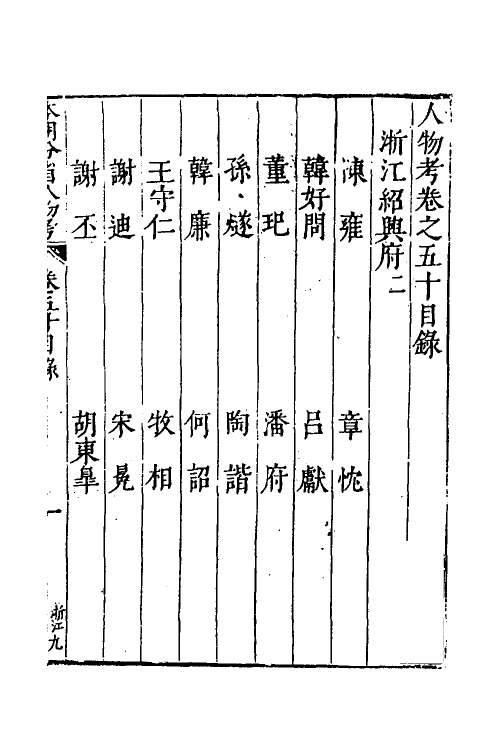 人物考卷之五十目錄
浙江紹興府二
陳雍 章忱
韓好問 呂獻
董玘 潘府
孫燧 陶諧
韓廉 何詔
王守仁 牧相
謝迪 宋冕
謝丕 胡東皐
本朝分省人物考 卷五十目錄 一 浙江九